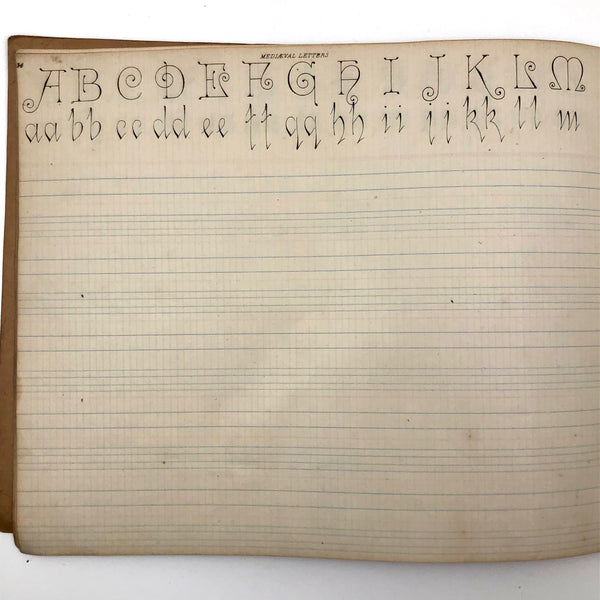 MEDIÆVAL LETTERS
A B C D E F G H I J K L M
aa bb cc dd ee ff gg hh ii jj kk ll m